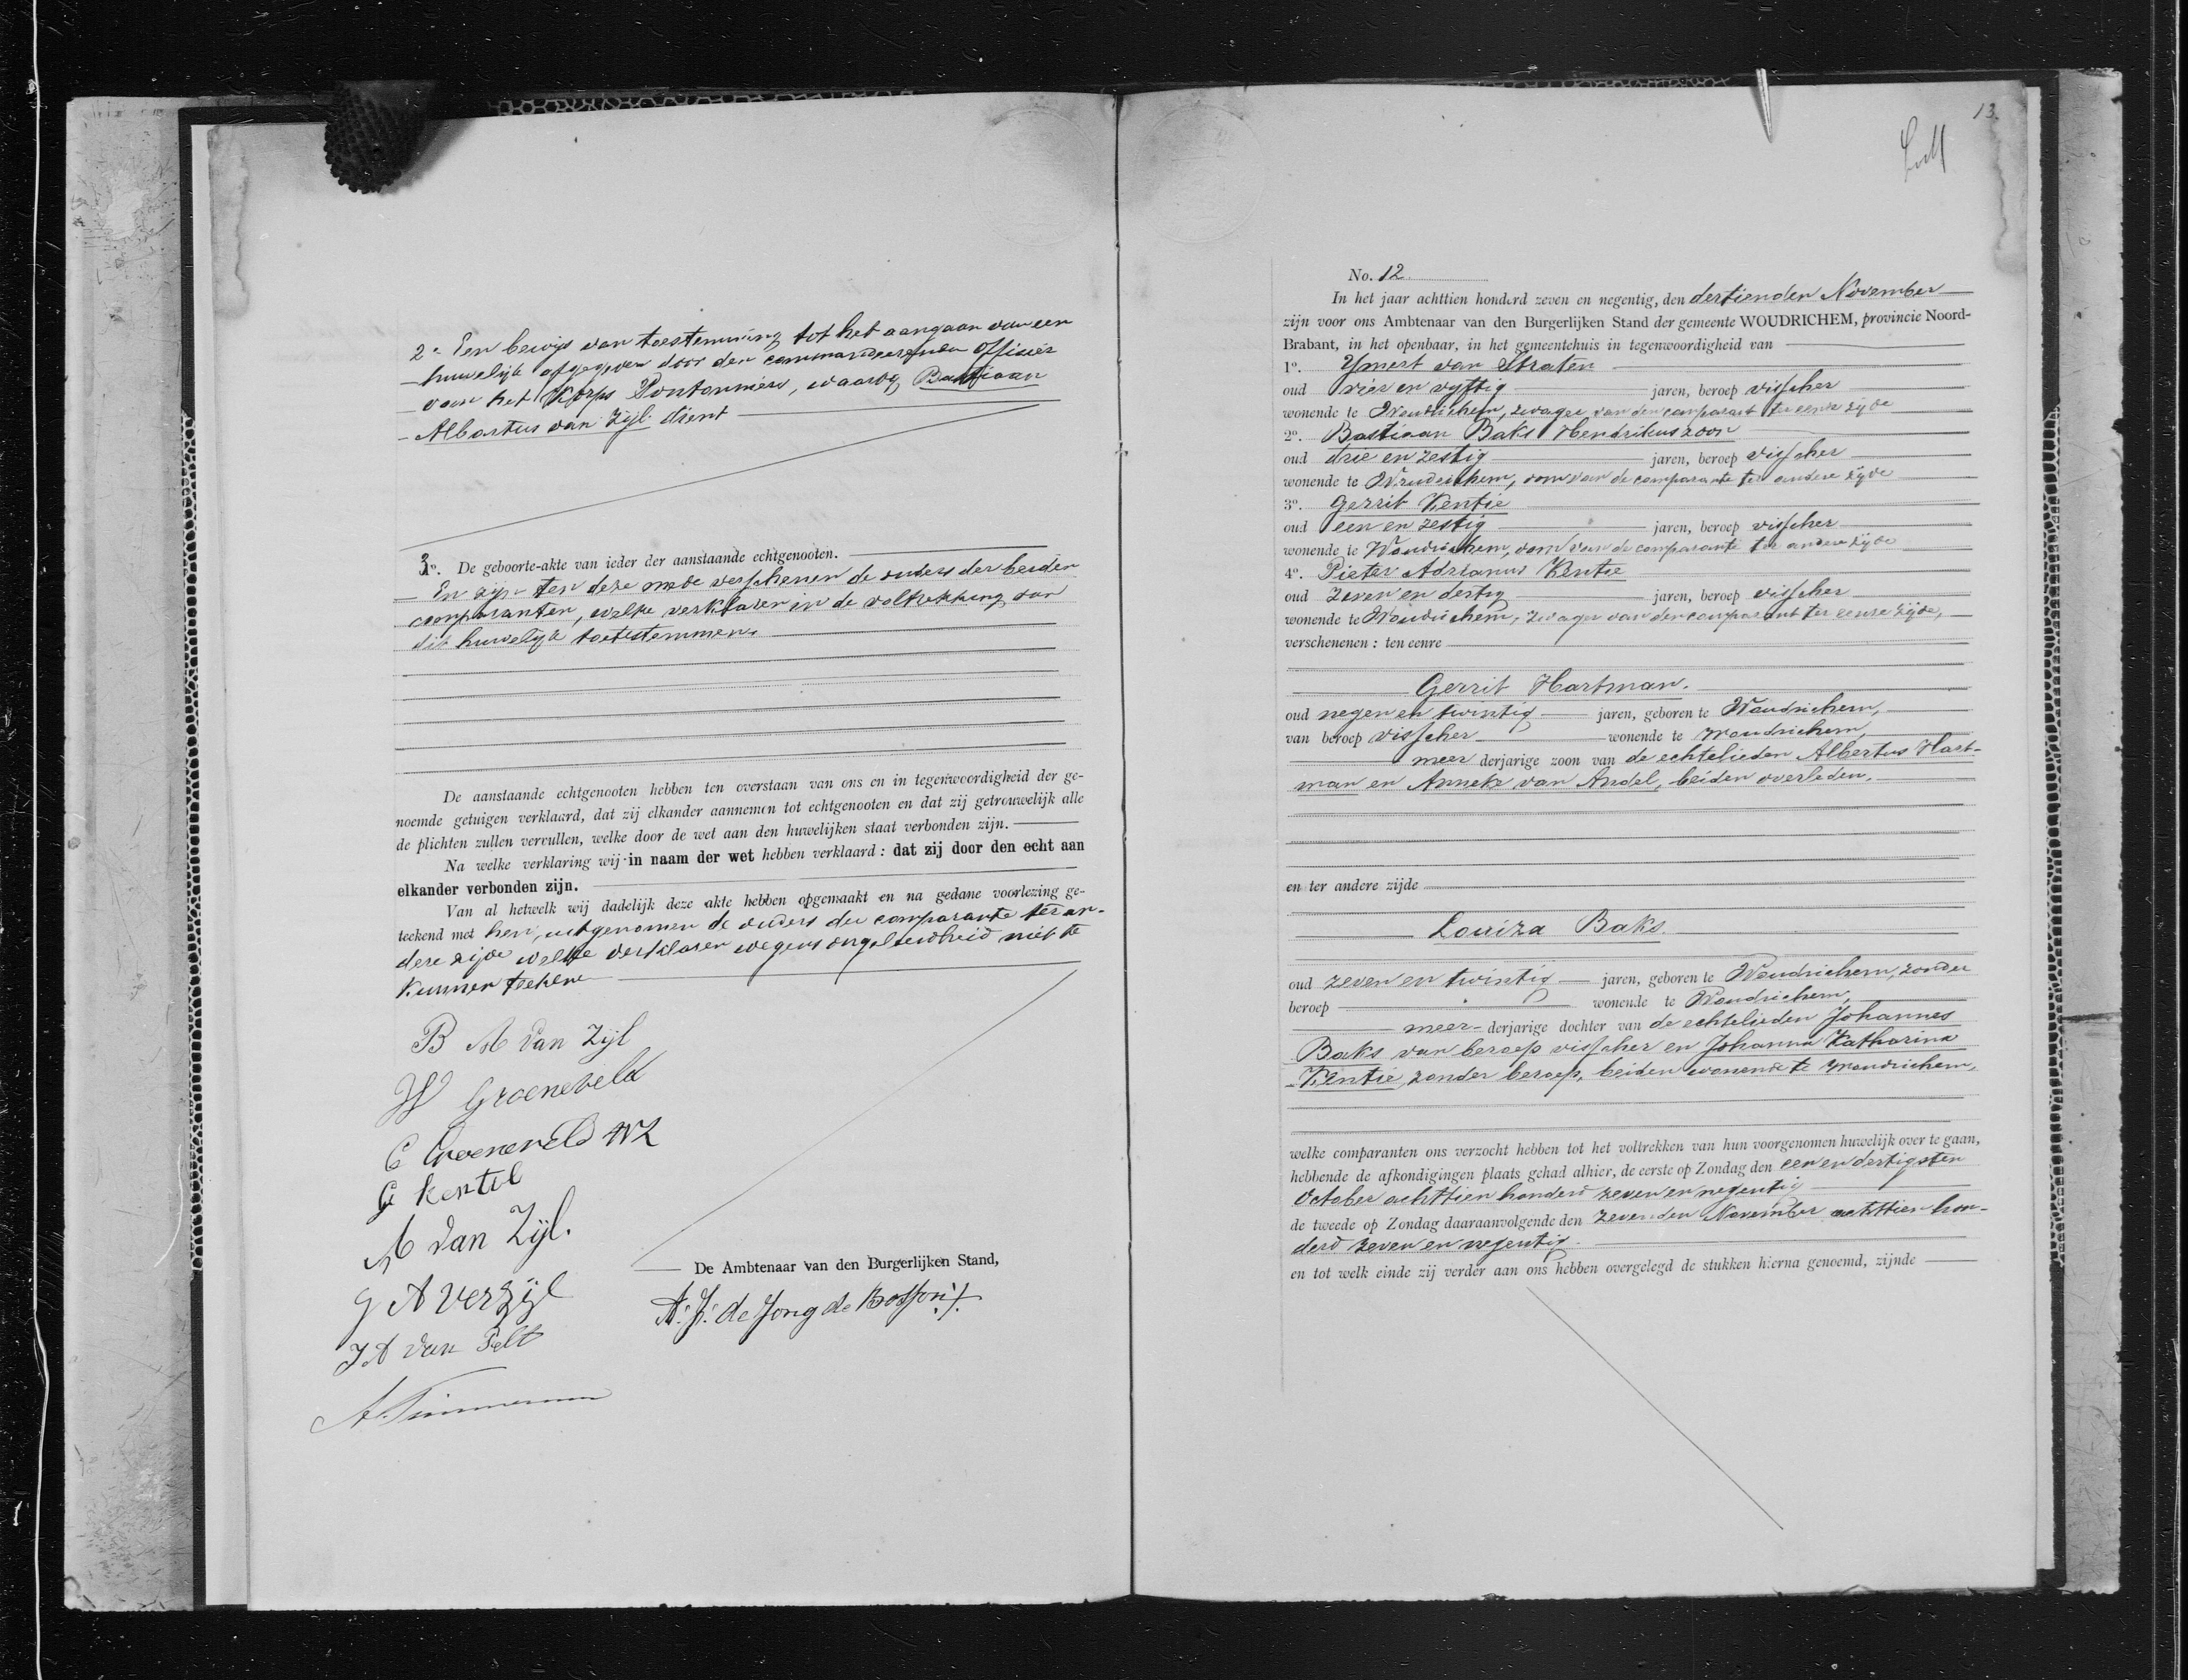 2º Een bewijs van toestemming tot het aangaan van een
huwelijk afgegeven door den commandeerenden Officier
van het Korps Pontonniers, waarbij Bastiaan
Albartus van Zijl dient
3º. De geboorte-akte van ieder der aanstaande echtgenooten.
En zijn ten deze mede verschenen de ouders der beiden
comparanten, welke verklaren in de voltrekking van
dit huwelijk toetestemmen.
De aanstaande echtgenooten hebben ten overstaan van ons en in tegenwoordigheid der ge-
noemde getuigen verklaard, dat zij elkander aannemen tot echtgenooten en dat zij getrouwelijk alle
de plichten zullen vervullen, welke door de wet aan den huwelijken staat verbonden zijn.
Na welke verklaring wij in naam der wet hebben verklaard: dat zij door den echt aan
elkander verbonden zijn.
Van al hetwelk wij dadelijk deze akte hebben opgemaakt en na gedane voorlezing ge-
teekend met hen, uitgenomen de ouders der comparante ter an-
dere zijde welke verklaren wegens ongeleerdheid niet te
kunnen teekenen
B A van Zijl
W Groeneveld
C Groeneveld WZ
G Kentie
A van Zijl.
G A Verzijl
J A van Pelt
A. Timmerman
De Ambtenaar van den Burgerlijken Stand,
de Jong de Bosson
13.
No. 12
In het jaar achttien honderd zeven en negentig, den dertienden November
zijn voor ons Ambtenaar van den Burgerlijken Stand der gemeente WOUDRICHEM, provincie Noord-
Brabant, in het openbaar, in het gemeentehuis in tegenwoordigheid van
1º. Ymert van Straten
oud vier en vijftig jaren, beroep visscher
wonende te Woudrichem, zwager van den comparant ter eenre zijde
2º. Bastiaan Baks Hendrikuszoon
oud drie en zestig jaren, beroep visscher
wonende te Woudrichem, oom van de comparante ter andere zijde
3º. Gerrit Kentie
oud een en zestig jaren, beroep visscher
wonende te Woudrichem, oom van de comparante ter andere zijde
4º. Pieter Adrianus Kentie
oud zeven en dertig jaren, beroep visscher
wonende te Woudrichem, zwager van den comparant ter eenre zijde,
verschenenen: ten eenre
Gerrit Hartman.
oud negen en twintig jaren, geboren te Woudrichem,
van beroep visscher wonende te Woudrichem,
meer derjarige zoon van de echtelieden Albertus Hart-
man en Anneke van Andel, beiden overleden.
en ter andere zijde
Louiza Baks.
oud zeven en twintig jaren, geboren te Woudrichem, zonder
beroep wonende te Woudrichem,
meer-derjarige dochter van de echtelieden Johannes
Baks van beroep visscher en Johanna Katharina
Kentie, zonder beroep, beiden wonende te Woudrichem,
welke comparanten ons verzocht hebben tot het voltrekken van hun voorgenomen huwelijk over te gaan,
hebbende de afkondigingen plaats gehad alhier, de eerste op Zondag den een en dertigsten
October achttien honderd zeven en negentig
de tweede op Zondag daaraanvolgende den zevenden November achttien hon-
derd zeven en negentig.
en tot welk einde zij verder aan ons hebben overgelegd de stukken hierna genoemd, zijnde